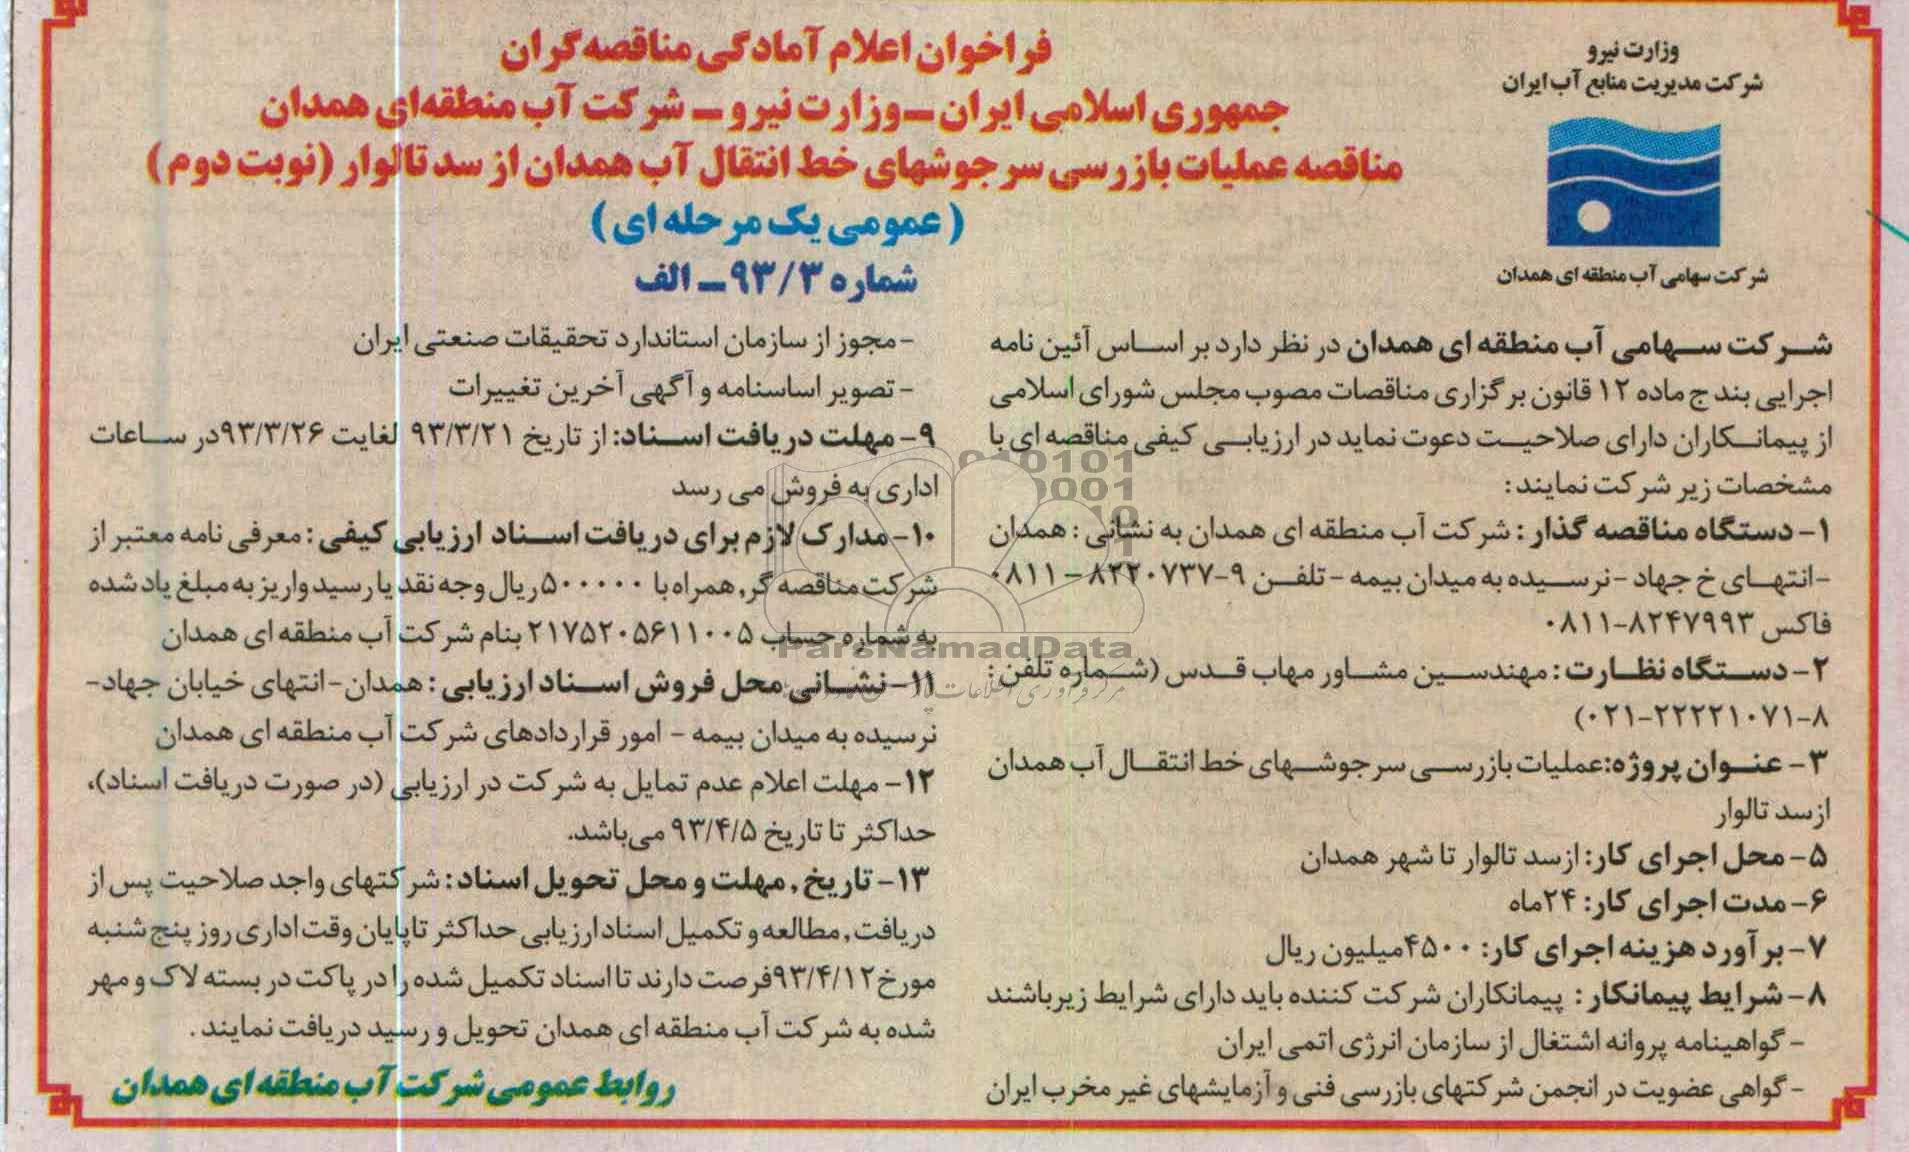 وزارت نیرو
شرکت مدیریت منابع آب ایران
شرکت سهامی آب منطقه ای همدان
فراخوان اعلام آمادگی مناقصه‌گران
جمهوری اسلامی ایران ــ وزارت نیرو ــ شرکت آب منطقه‌ای همدان
مناقصه عملیات بازرسی سرجوشهای خط انتقال آب همدان از سد تالوار (نوبت دوم)
(عمومی یک مرحله ای)
شماره ۹۳/۳ــ الف
شرکت سهامی آب منطقه ای همدان در نظر دارد بر اساس آئین نامه
اجرایی بند ج ماده ۱۲ قانون برگزاری مناقصات مصوب مجلس شورای اسلامی
از پیمانکاران دارای صلاحیت دعوت نماید در ارزیابی کیفی مناقصه ای با
مشخصات زیر شرکت نمایند:
۱- دستگاه مناقصه گذار : شرکت آب منطقه ای همدان به نشانی : همدان
-انتهای خ جهاد -نرسیده به میدان بیمه -تلفن ۹-۸۲۲۰۷۳۷-۰۸۱۱
فاکس ۸۲۴۷۹۹۳-۰۸۱۱
۲- دستگاه نظارت : مهندسین مشاور مهاب قدس (شماره تلفن :
۸-۲۲۲۲۱۰۷۱-۰۲۱)
۳- عنوان پروژه:عملیات بازرسی سرجوشهای خط انتقال آب همدان
ازسد تالوار
۵- محل اجرای کار: ازسد تالوار تا شهر همدان
۶- مدت اجرای کار: ۲۴ماه
۷- برآورد هزینه اجرای کار: ۴۵۰۰میلیون ریال
۸- شرایط پیمانکار : پیمانکاران شرکت کننده باید دارای شرایط زیرباشند
- گواهینامه پروانه اشتغال از سازمان انرژی اتمی ایران
- گواهی عضویت در انجمن شرکتهای بازرسی فنی و آزمایشهای غیر مخرب ایران
- مجوز از سازمان استاندارد تحقیقات صنعتی ایران
- تصویر اساسنامه و آگهی آخرین تغییرات
۹- مهلت دریافت اسناد: از تاریخ ۹۳/۳/۲۱ لغایت ۹۳/۳/۲۶در ساعات
اداری به فروش می رسد
۱۰- مدارک لازم برای دریافت اسناد ارزیابی کیفی : معرفی نامه معتبر از
شرکت مناقصه گر, همراه با ۵۰۰۰۰۰ریال وجه نقد یا رسید واریز به مبلغ یاد شده
به شماره حساب ۲۱۷۵۲۰۵۶۱۱۰۰۵ بنام شرکت آب منطقه ای همدان
۱۱- نشانی محل فروش اسناد ارزیابی : همدان- انتهای خیابان جهاد-
نرسیده به میدان بیمه - امور قراردادهای شرکت آب منطقه ای همدان
۱۲- مهلت اعلام عدم تمایل به شرکت در ارزیابی (در صورت دریافت اسناد)،
حداکثر تا تاریخ ۹۳/۴/۵ می‌باشد.
۱۳- تاریخ , مهلت و محل تحویل اسناد : شرکتهای واجد صلاحیت پس از
دریافت, مطالعه و تکمیل اسناد ارزیابی حداکثر تاپایان وقت اداری روز پنج شنبه
مورخ۹۳/۴/۱۲فرصت دارند تا اسناد تکمیل شده را در پاکت در بسته لاک و مهر
شده به شرکت آب منطقه ای همدان تحویل و رسید دریافت نمایند .
روابط عمومی شرکت آب منطقه ای همدان
ParsNamadData